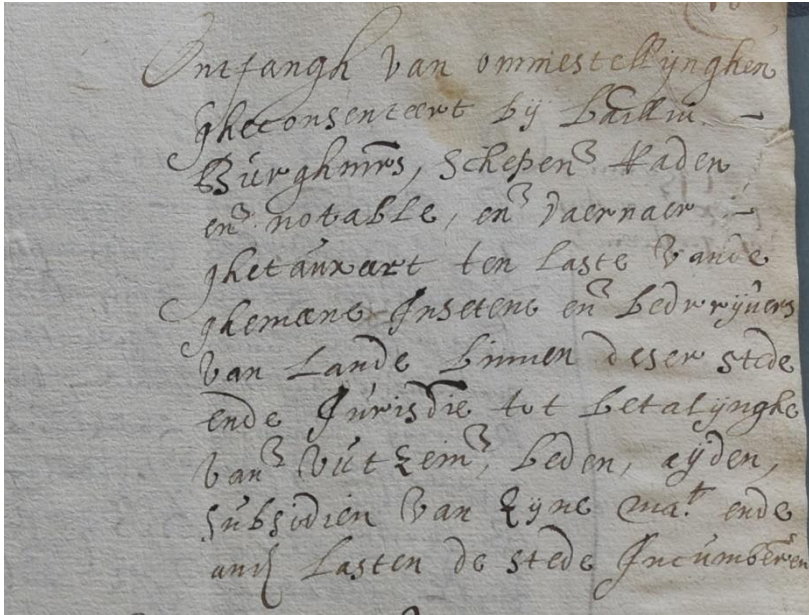 Ontfangh van ommestellijnghen
gheconsenteert bij bailliu
Burghmrs, schepen Raden
en notable, en daernaer
ghetauxeert ten laste vande
ghemeene Insetene en bedrijvers
van Lande binnen deser stede
ende Jurisdie tot betalijnghe
van beden, aijden,
subsidien van zijne mat. ende
and lasten de stede Incumberen